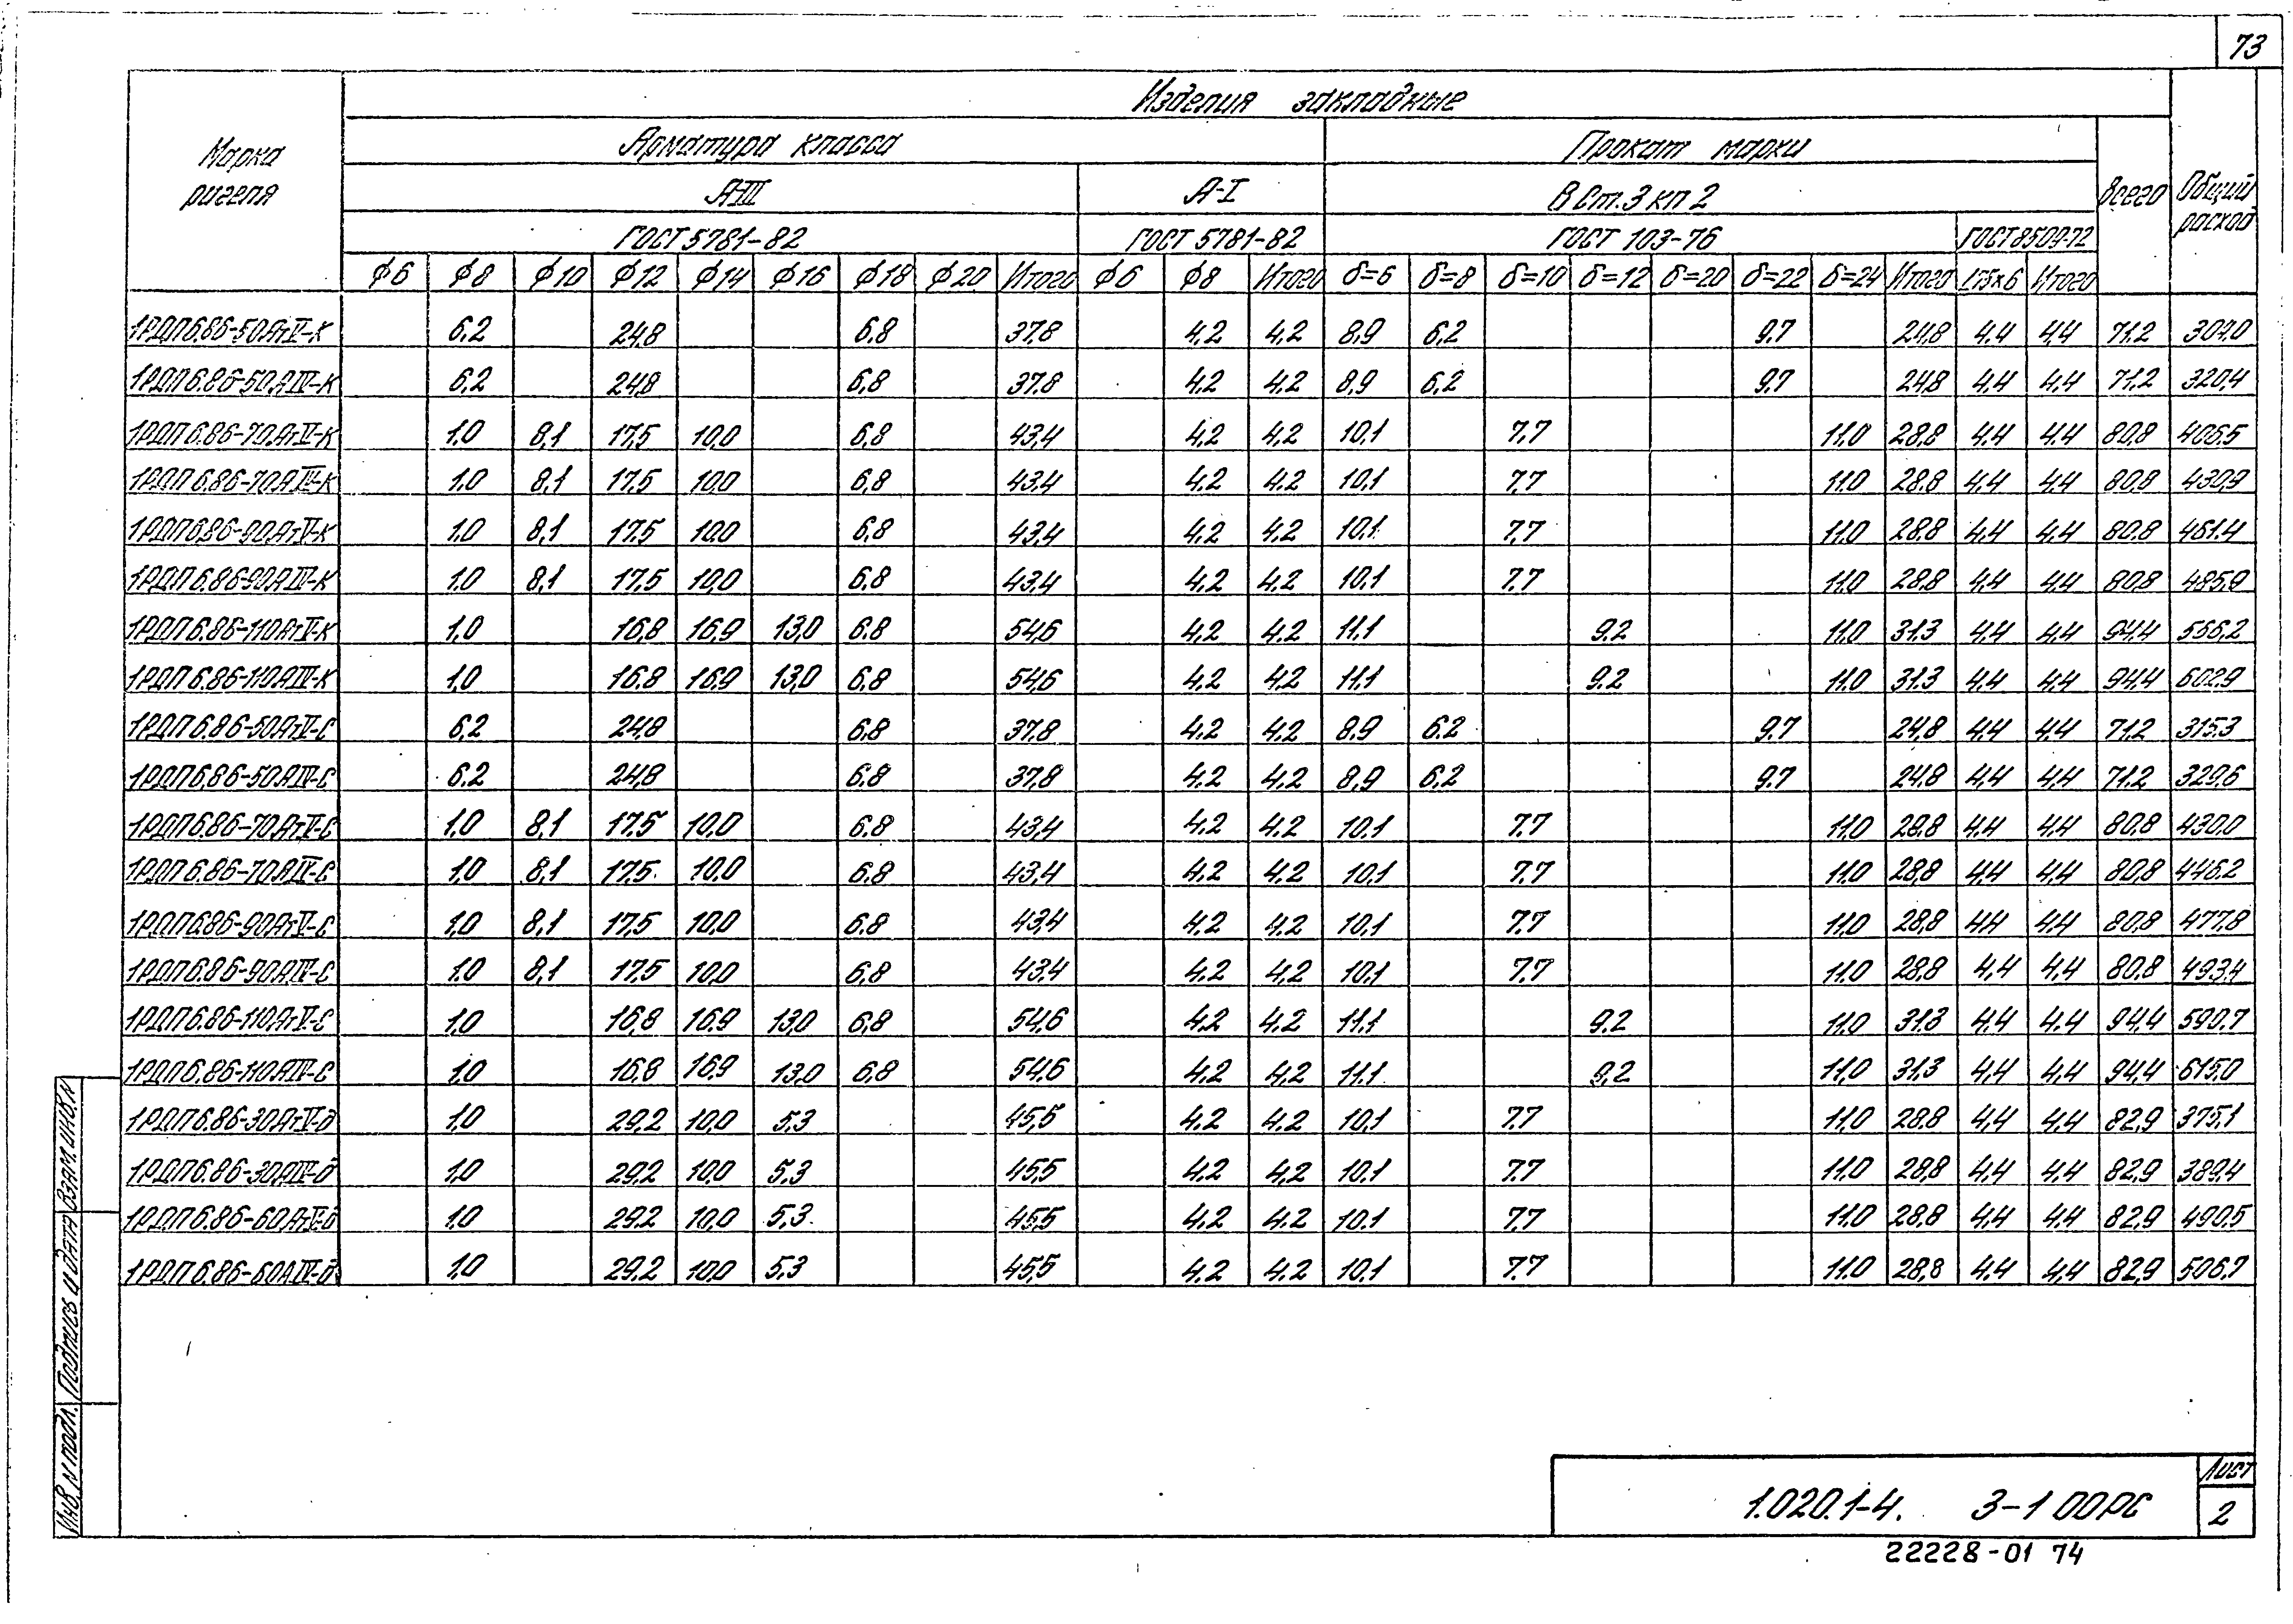 73
Изделия закладные
Марка ригеля
Арматура класса
Прокат марки
Всего
Общий расход
А-III
А-I
В Ст. 3 кп 2
ГОСТ 5781-82
ГОСТ 5781-82
ГОСТ 103-76
ГОСТ 8509-72
ϕ6 ϕ8 ϕ10 ϕ12 ϕ14 ϕ16 ϕ18 ϕ20 Итого ϕ6 ϕ8 Итого δ=6 δ=8 δ=10 δ=12 δ=20 δ=22 δ=24 Итого L75×6 Итого
1РДП6.86-50АтV-К 6,2 24,8 6,8 37,8 4,2 4,2 8,9 6,2 9,7 24,8 4,4 4,4 71,2 307,0
1РДП6.86-50АIV-К 6,2 24,8 6,8 37,8 4,2 4,2 8,9 6,2 9,7 24,8 4,4 4,4 71,2 320,4
1РДП6.86-70АтV-К 1,0 8,1 17,5 10,0 6,8 43,4 4,2 4,2 10,1 7,7 11,0 28,8 4,4 4,4 80,8 406,5
1РДП6.86-70АIV-К 1,0 8,1 17,5 10,0 6,8 43,4 4,2 4,2 10,1 7,7 11,0 28,8 4,4 4,4 80,8 430,9
1РДП6.86-90АтV-К 1,0 8,1 17,5 10,0 6,8 43,4 4,2 4,2 10,1 7,7 11,0 28,8 4,4 4,4 80,8 461,4
1РДП6.86-90АIV-К 1,0 8,1 17,5 10,0 6,8 43,4 4,2 4,2 10,1 7,7 11,0 28,8 4,4 4,4 80,8 485,9
1РДП6.86-110АтV-К 1,0 16,8 16,9 13,0 6,8 54,6 4,2 4,2 11,1 9,2 11,0 31,3 4,4 4,4 94,4 566,2
1РДП6.86-110АIV-К 1,0 16,8 16,9 13,0 6,8 54,6 4,2 4,2 11,1 9,2 11,0 31,3 4,4 4,4 94,4 602,9
1РДП6.86-50АтV-С 6,2 24,8 6,8 37,8 4,2 4,2 8,9 6,2 9,7 24,8 4,4 4,4 71,2 315,3
1РДП6.86-50АIV-С 6,2 24,8 6,8 37,8 4,2 4,2 8,9 6,2 9,7 24,8 4,4 4,4 71,2 329,6
1РДП6.86-70АтV-С 1,0 8,1 17,5 10,0 6,8 43,4 4,2 4,2 10,1 7,7 11,0 28,8 4,4 4,4 80,8 430,0
1РДП6.86-70АIV-С 1,0 8,1 17,5 10,0 6,8 43,4 4,2 4,2 10,1 7,7 11,0 28,8 4,4 4,4 80,8 446,2
1РДП6.86-90АтV-С 1,0 8,1 17,5 10,0 6,8 43,4 4,2 4,2 10,1 7,7 11,0 28,8 4,4 4,4 80,8 477,8
1РДП6.86-90АIV-С 1,0 8,1 17,5 10,0 6,8 43,4 4,2 4,2 10,1 7,7 11,0 28,8 4,4 4,4 80,8 493,4
1РДП6.86-110АтV-С 1,0 16,8 16,9 13,0 6,8 54,6 4,2 4,2 11,1 9,2 11,0 31,3 4,4 4,4 94,4 590,7
1РДП6.86-110АIV-С 1,0 16,8 16,9 13,0 6,8 54,6 4,2 4,2 11,1 9,2 11,0 31,3 4,4 4,4 94,4 615,0
1РДП6.86-30АтV-д 1,0 29,2 10,0 5,3 45,5 4,2 4,2 10,1 7,7 11,0 28,8 4,4 4,4 82,9 375,1
1РДП6.86-30АIV-д 1,0 29,2 10,0 5,3 45,5 4,2 4,2 10,1 7,7 11,0 28,8 4,4 4,4 82,9 389,4
1РДП6.86-60АтV-д 1,0 29,2 10,0 5,3 45,5 4,2 4,2 10,1 7,7 11,0 28,8 4,4 4,4 82,9 490,5
1РДП6.86-60АIV-д 1,0 29,2 10,0 5,3 45,5 4,2 4,2 10,1 7,7 11,0 28,8 4,4 4,4 82,9 506,7
Инв. N подл. Подпись и дата Взам. инв. N
1.020.1-4. 3-1 00РС
Лист
2
22228-01 74